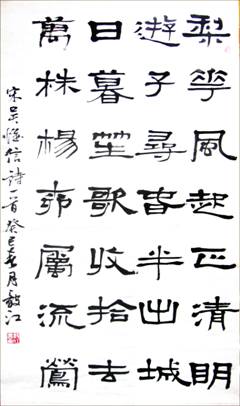 梨華風起正清明
遊子尋旾半出城
日暮笙歌收拾去
萬株楊柳屬流鶯
宋吳惟信詩首癸巳春月江